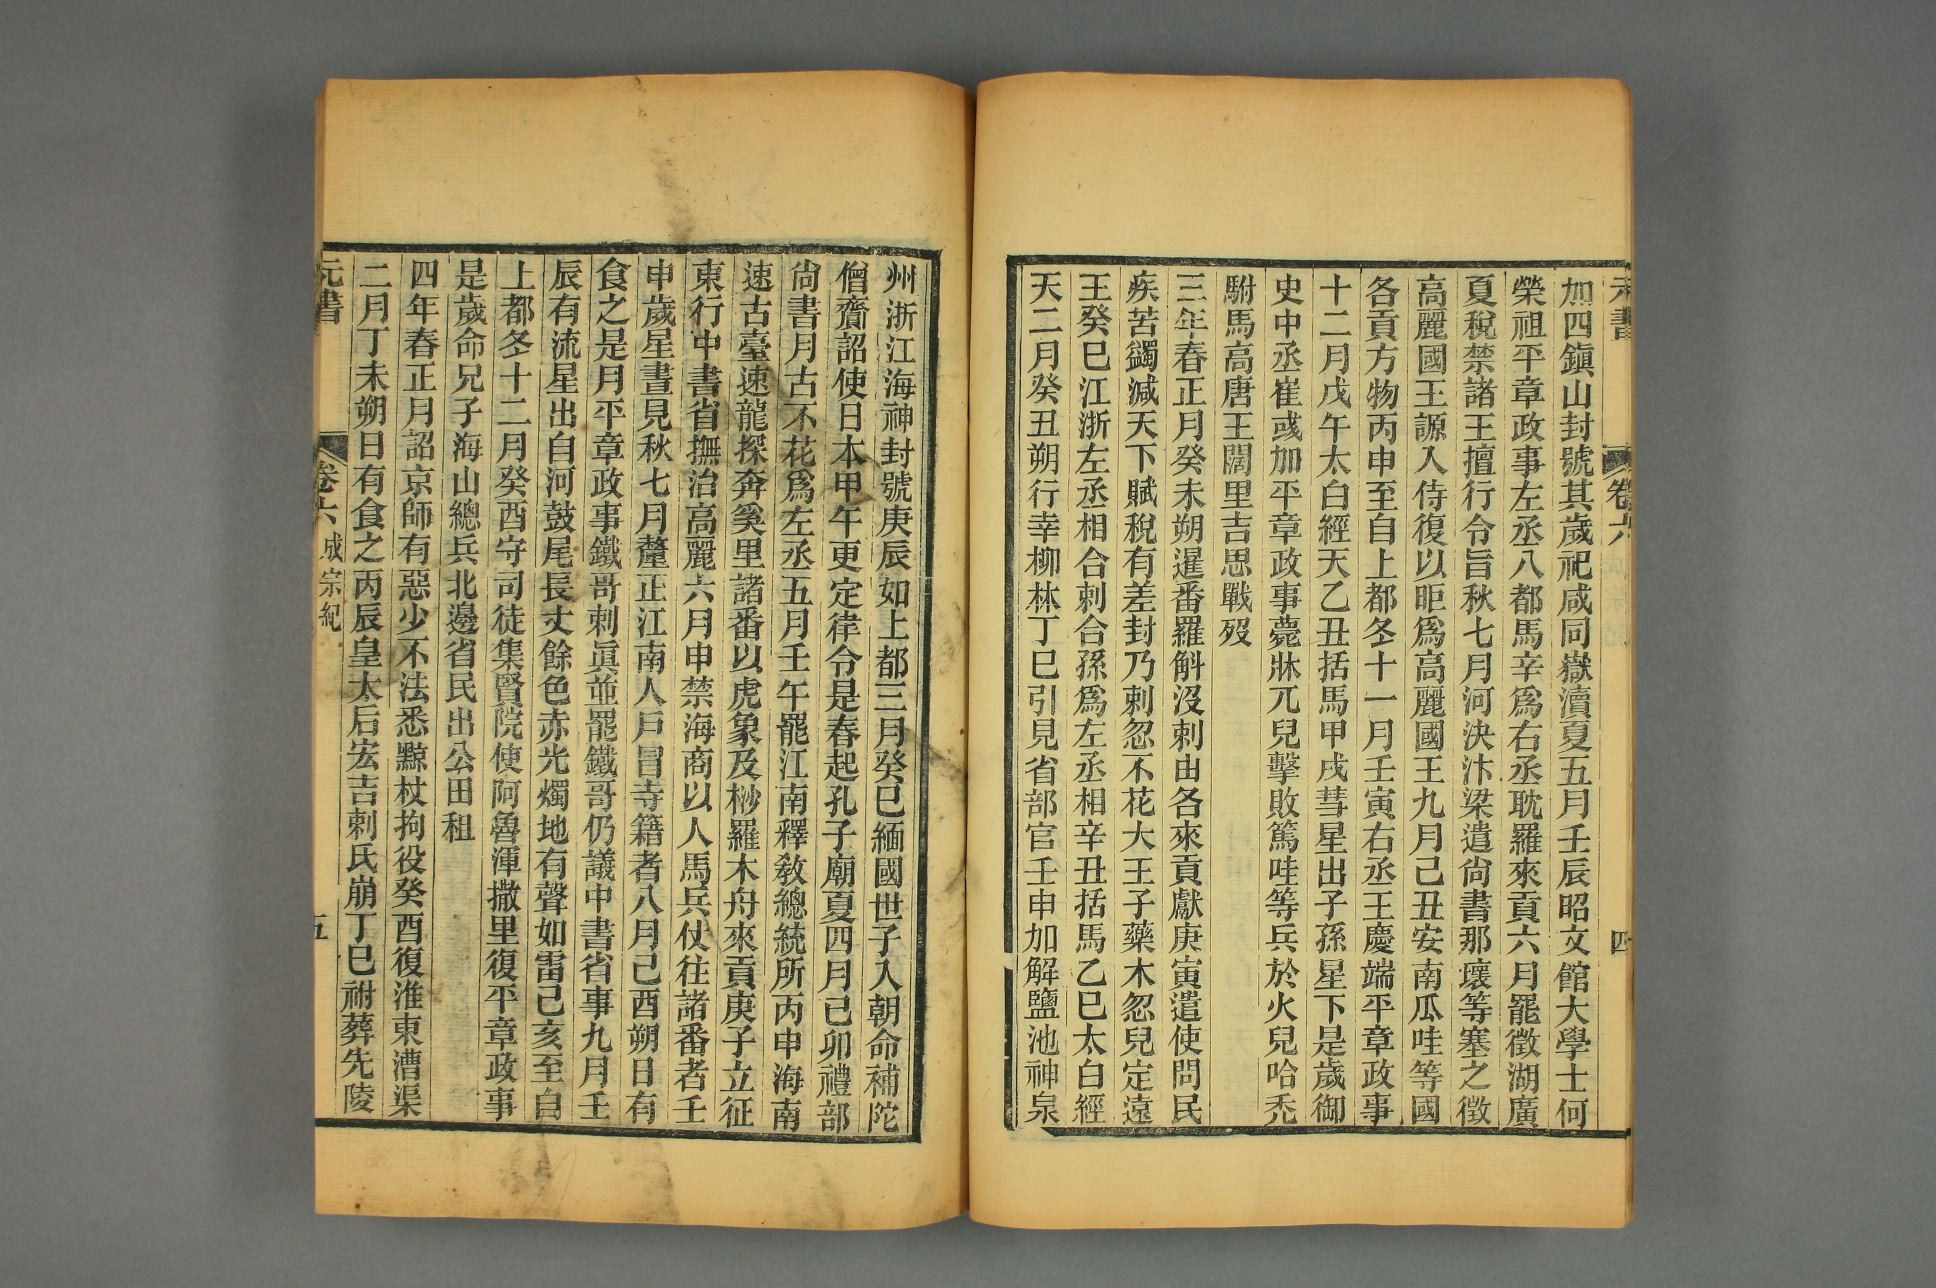 元書
卷六
四
加四鎭山封號其歲祀咸同嶽瀆夏五月壬辰昭文館大學士何
榮祖平章政事左丞八都馬辛爲右丞耽羅來貢六月罷徵湖廣
夏稅禁諸王擅行令旨秋七月河決汴梁遣尙書那壞等塞之徵
高麗國王謜入侍復以昛爲高麗國王九月己丑安南瓜哇等國
各貢方物丙申至自上都冬十一月壬寅右丞王慶端平章政事
十二月戊午太白經天乙丑括馬甲戌彗星出子孫星下是歲御
史中丞崔彧加平章政事薨牀兀兒擊敗篤哇等兵於火兒哈禿
駙馬高唐王闊里吉思戰歿
三年春正月癸未朔暹番羅斛沒剌由各來貢獻庚寅遣使問民
疾苦蠲減天下賦稅有差封乃剌忽不花大王子藥木忽兒定遠
王癸巳江浙左丞相合剌合孫爲左丞相辛丑括馬乙巳太白經
天二月癸丑朔行幸柳林丁巳引見省部官壬申加解鹽池神泉
州浙江海神封號庚辰如上都三月癸巳緬國世子入朝命補陀
僧齎詔使日本甲午更定律令是春起孔子廟夏四月己卯禮部
尙書月古不花爲左丞五月壬午罷江南釋敎總統所丙申海南
速古臺速龍探奔奚里諸番以虎象及桫羅木舟來貢庚子立征
東行中書省撫治高麗六月申禁海商以人馬兵仗往諸番者壬
申歲星晝見秋七月釐正江南人戶冒寺籍者八月己酉朔日有
食之是月平章政事鐵哥剌眞並罷鐵哥仍議中書省事九月壬
辰有流星出自河鼓尾長丈餘色赤光燭地有聲如雷己亥至自
上都冬十二月癸酉守司徒集賢院使阿魯渾撒里復平章政事
是歲命兄子海山總兵北邊省民出公田租
四年春正月詔京師有惡少不法悉黥杖拘役癸酉復淮東漕渠
二月丁未朔日有食之丙辰皇太后宏吉剌氏崩丁巳祔葬先陵
元書
卷六
成宗紀
五